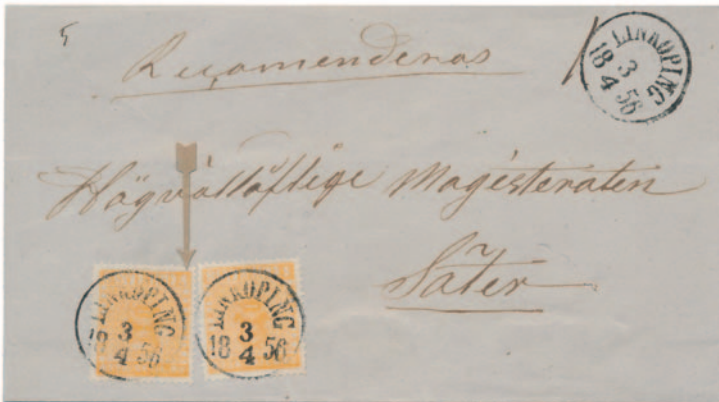 5
Recomenderas
LINKÖPING
3
18 56
4
Högvällofliga Magistraten
Säter
LINKÖPING
3
18 56
4
LINKÖPING
3
18 56
4